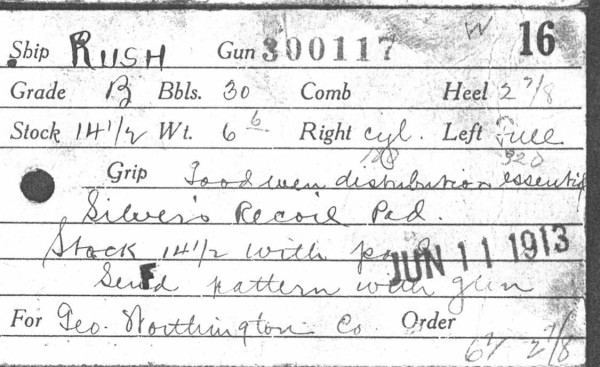 W 16
Ship RUSH Gun 300117
Grade B Bbls. 30 Comb Heel 2 7/8
Stock 14 1/2 Wt. 6 6 Right cyl. Left Full
128 320
Grip Good even distribution essential
Silver's Recoil Pad.
Stock 14 1/2 with pad
JUN 11 1913
Send pattern with gun
For Geo. Worthington Co. Order
2 7/8